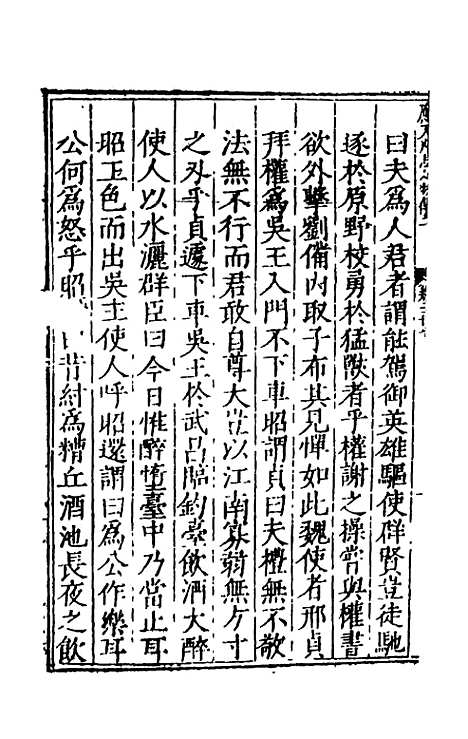 曰夫爲人君者謂能駕御英雄驅使群賢豈徒馳
逐於原野校勇於猛獸者乎權謝之操嘗與權書
欲外擊劉備内取子布其見憚如此魏使者邢貞
拜權爲吳王入門不下車昭謂貞曰夫禮無不敬
法無不行而君敢自尊大豈以江南寡弱無方寸
之刃乎貞遽下車吳王於武昌臨釣臺飲酒大醉
使人以水灑群臣曰今日惟醉墮臺中乃當止耳
昭正色而出吳主使人呼昭還謂曰爲公作樂耳
公何爲怒乎昭 曰昔紂爲糟丘酒池長夜之飲